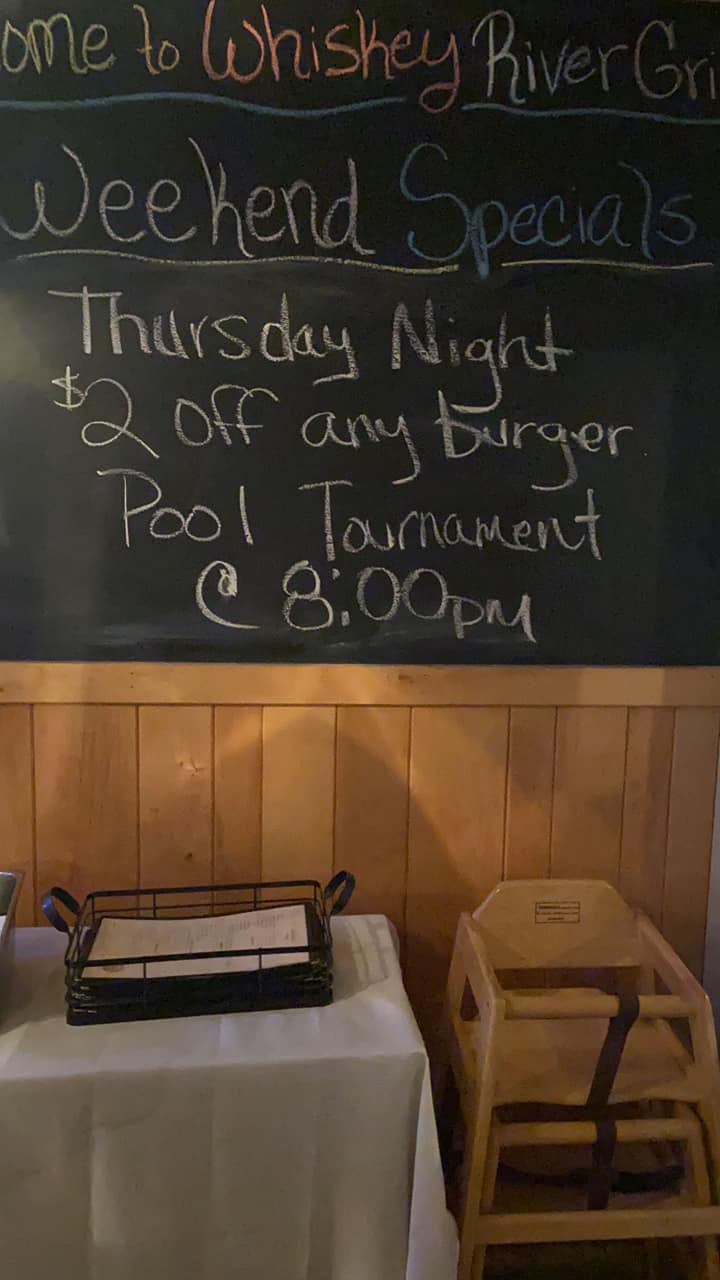 ome to Whiskey River Gri
Weekend Specials
Thursday Night
$2 off any burger
Pool Tournament
@ 8:00pm